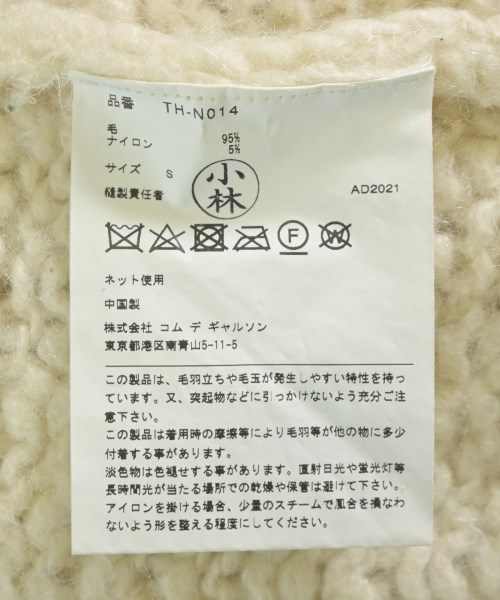 品番 TH-N014
毛 95%
ナイロン 5%
サイズ S
小林
縫製責任者 AD2021
F W
ネット使用
中国製
株式会社 コム デ ギャルソン
東京都港区南青山5-11-5
この製品は、毛羽立ちや毛玉が発生しやすい特性を持っ
ています。又、突起物などに引っかけないよう充分ご注
意下さい。
この製品は着用時の摩擦等により毛羽等が他の物に多少
付着する事があります。
淡色物は色褪せする事があります。直射日光や蛍光灯等
長時間光が当たる場所での乾燥や保管は避けて下さい。
アイロンを掛ける場合、少量のスチームで風合を損なわ
ないよう形を整える程度にしてください。